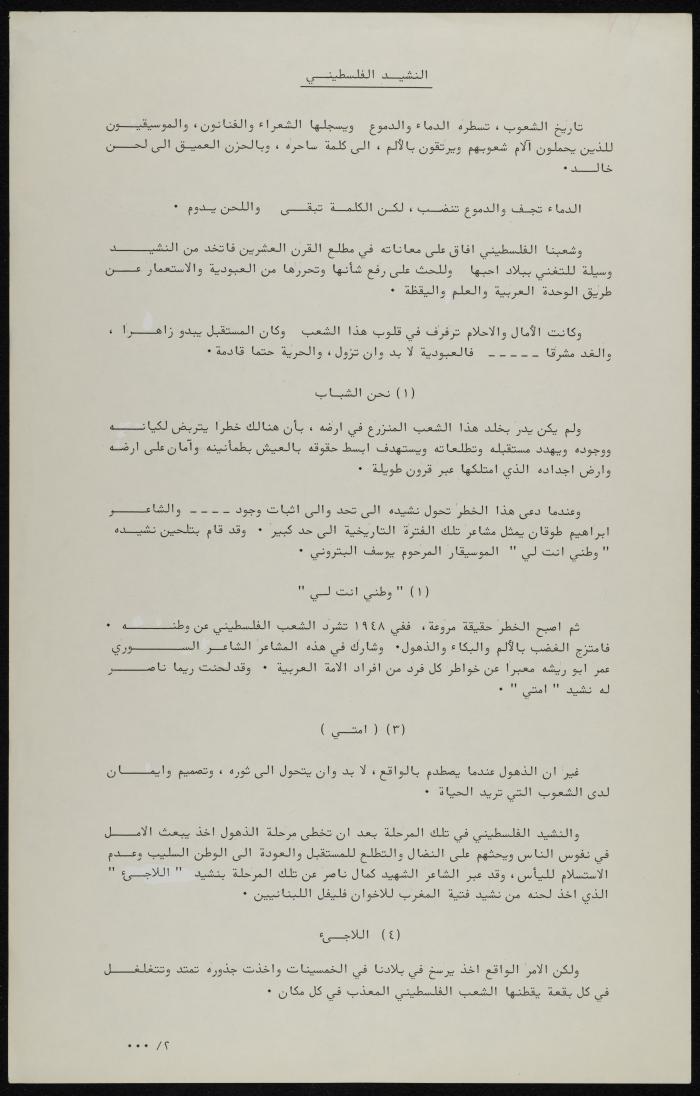 النشيد الفلسطيني
تاريخ الشعوب ، تسطره الدماء والدموع ويسجلها الشعراء والفنانون ، والموسيقيون
للذين يحملون آلام شعوبهم ويرتقون بالألم ، الى كلمة ساحره ، وبالحزن العميق الى لحن
خالد .
الدماء تجف والدموع تنضب ، لكن الكلمة تبقى واللحن يدوم .
وشعبنا الفلسطيني افاق على معاناته في مطلع القرن العشرين فاتخد من النشيد
وسيلة للتغني ببلاد احبها وللحث على رفع شأنها وتحررها من العبودية والاستعمار عن
طريق الوحدة العربية والعلم واليقظة .
وكانت الأمال والاحلام ترفرف في قلوب هذا الشعب وكان المستقبل يبدو زاهرا ،
والغد مشرقا ـ ـ ـ ـ ـ فالعبودية لا بد وان تزول ، والحرية حتما قادمة .
(١) نحن الشباب
ولم يكن يدر بخلد هذا الشعب المنزرع في ارضه ، بأن هنالك خطرا يتربض لكيانه
ووجوده ويهدد مستقبله وتطلعاته ويستهدف ابسط حقوقه بالعيش بطمأنينه وآمان على ارضه
وارض اجداده الذي امتلكها عبر قرون طويلة .
وعندما دعى هذا الخطر تحول نشيده الى تحد والى اثبات وجود ـ ـ ـ ـ والشاعر
ابراهيم طوقان يمثل مشاعر تلك الفترة التاريخية الى حد كبير . وقد قام بتلحين نشيده
" وطني انت لي " الموسيقار المرحوم يوسف البتروني .
(١) " وطني انت لي "
ثم اصبح الخطر حقيقة مروعة ، ففي ١٩٤٨ تشرد الشعب الفلسطيني عن وطنه .
فامتزج الغضب بالألم والبكاء والذهول . وشارك في هذه المشاعر الشاعر السوري
عمر ابو ريشه معبرا عن خواطر كل فرد من افراد الامة العربية . وقد لحنت ريما ناصر
له نشيد " امتي " .
(٣) ( امتي )
غير ان الذهول عندما يصطدم بالواقع ، لا بد وان يتحول الى ثوره ، وتصميم وايمان
لدى الشعوب التي تريد الحياة .
والنشيد الفلسطيني في تلك المرحلة بعد ان تخطى مرحلة الذهول اخذ يبعث الامل
في نفوس الناس ويحثهم على النضال والتطلع للمستقبل والعودة الى الوطن السليب وعدم
الاستسلام لليأس ، وقد عبر الشاعر الشهيد كمال ناصر عن تلك المرحلة بنشيد " اللاجئ "
الذي اخذ لحنه من نشيد فتية المغرب للاخوان فليفل اللبنانيين .
(٤) اللاجئ
ولكن الامر الواقع اخذ يرسخ في بلادنا في الخمسينات واخذت جذوره تمتد وتتغلغل
في كل بقعة يقطنها الشعب الفلسطيني المعذب في كل مكان .
٢/ ...